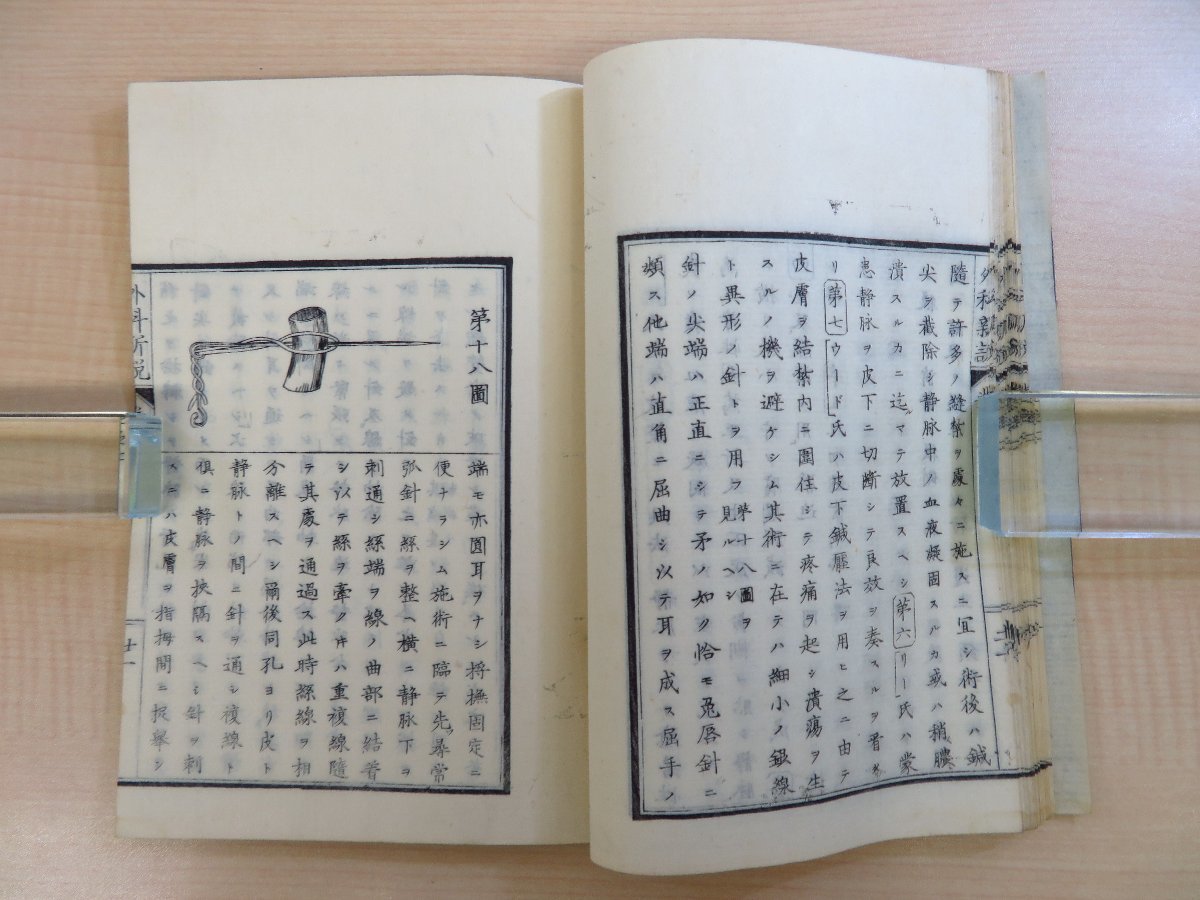 外科新説
隨テ許多ノ縫紮ヲ處々ニ施スニ宜シ術後ハ鍼
尖ヲ截除シ静脉中ノ血液凝固スルカ或ハ稍膿
潰スルカニ迄マテ放置スヘシ第六リー氏ハ蒙
患静脉ヲ皮下ニ切断シテ良效ヲ奏スルヲ
リ第七ウード氏ハ皮下鍼壓法ヲ用ヒ之ニ由テ
皮膚ヲ結紮内ニ圍住シテ疼痛ヲ起シ潰瘍ヲ生
スルノ機ヲ避ケシム其術ニ在テハ細小ノ銀線
ト異形ノ針トヲ用フ第十八圖ヲ見ルヘシ
針ノ尖端ハ正直ニシテ矛ノ如ク恰モ兎唇針ニ
類ス他端ハ直角ニ屈曲シ以テ耳ヲ成ス屈手ノ
第十八圖
端モ亦圓耳ヲナシ捋撫固定ニ
便ナラシム施術ニ臨テ先尋常
弧針ニ絲ヲ整ヘ横ニ静脉下ヲ
刺通シ絲端ヲ線ノ曲部ニ結着
シ以テ絲ヲ牽クキハ重複線隨
テ其處ヲ通過ス此時絲線ヲ相
分離スヘシ爾後同孔ヨリ皮ト
静脉トノ間ニ針ヲ通シ複線ト
倶ニ静脉ヲ挟隔スヘシ針ヲ刺
スニハ皮膚ヲ指拇間ニ撮擧シ
外科新説
廿一